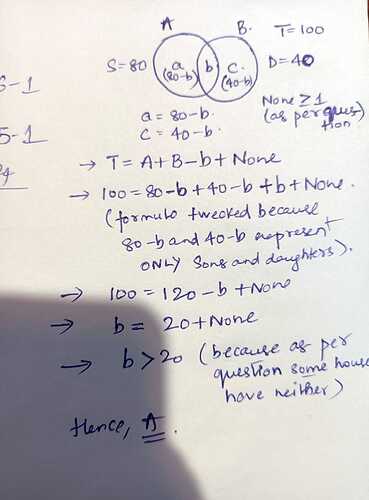 A B. T=100
S=80 a (80-b) b c. (40-b) D=40
6-1
None ≥ 1
(as per question)
a = 80-b.
c = 40-b.
5-1
→ T = A+B-b + None
→ 100 = 80-b+40-b+b+None.
(formula tweaked because
80-b and 40-b represent
ONLY Sons and daughters).
→ 100 = 120-b+None
→ b = 20+None
→ b>20 (because as per
question some house
have neither)
Hence, A.